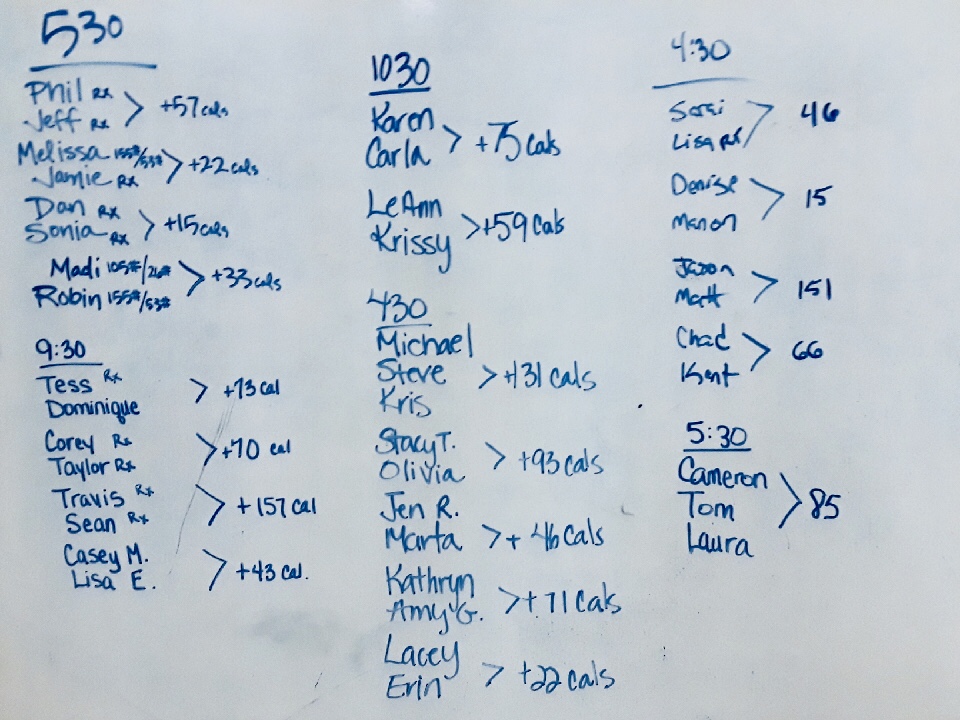 530
Phil Rx
Jeff Rx
> +57 cals
Melissa 155#/53#
Jamie Rx
> +22 cals
Dan Rx
Sonia Rx
> +15 cals
Madi 105#/26#
Robin 155#/53#
> +33 cals
9:30
Tess Rx
Dominique
> +73 cal
Corey Rx
Taylor Rx
> +70 cal
Travis Rx
Sean Rx
> + 157 cal
Casey M.
Lisa E.
> +43 cal.
1030
Karen
Carla
> +75 cals
LeAnn
Krissy
> +59 cals
430
Michael
Steve
Kris
> +131 cals
Stacy T.
Olivia
> +93 cals
Jen R.
Marta
> + 46 cals
Kathryn
Amy G.
> + 71 cals
Lacey
Erin
> +22 cals
4:30
Lisa Rx
> 46
Denise
Manon
> 15
Jason
Matt
> 151
Chad
Kent
> 66
5:30
Cameron
Tom
Laura
> 85